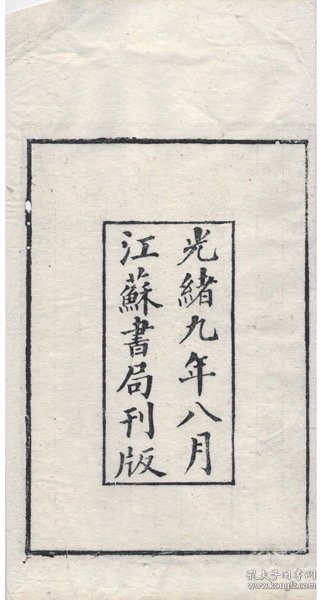 光緒九年八月
江蘇書局刊版
孔夫子旧书网
www.kongfz.com